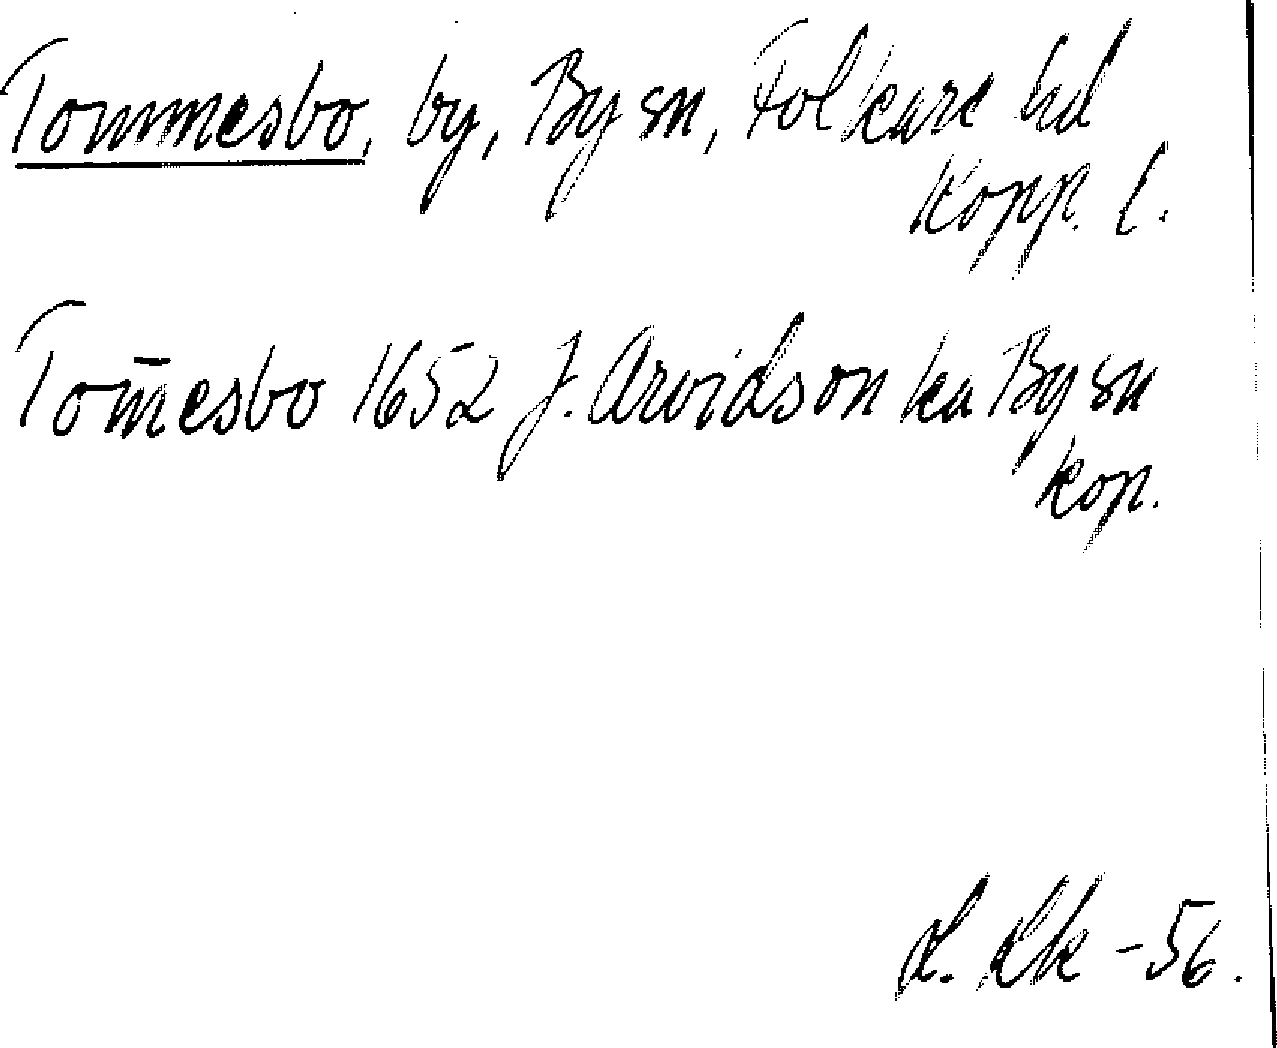 Tommesbo, by, By sn, Folkare hd
Kopp. l.
Tom̄esbo 1652 J. Arvidson ka By sn
kop.
L. Lk -56.